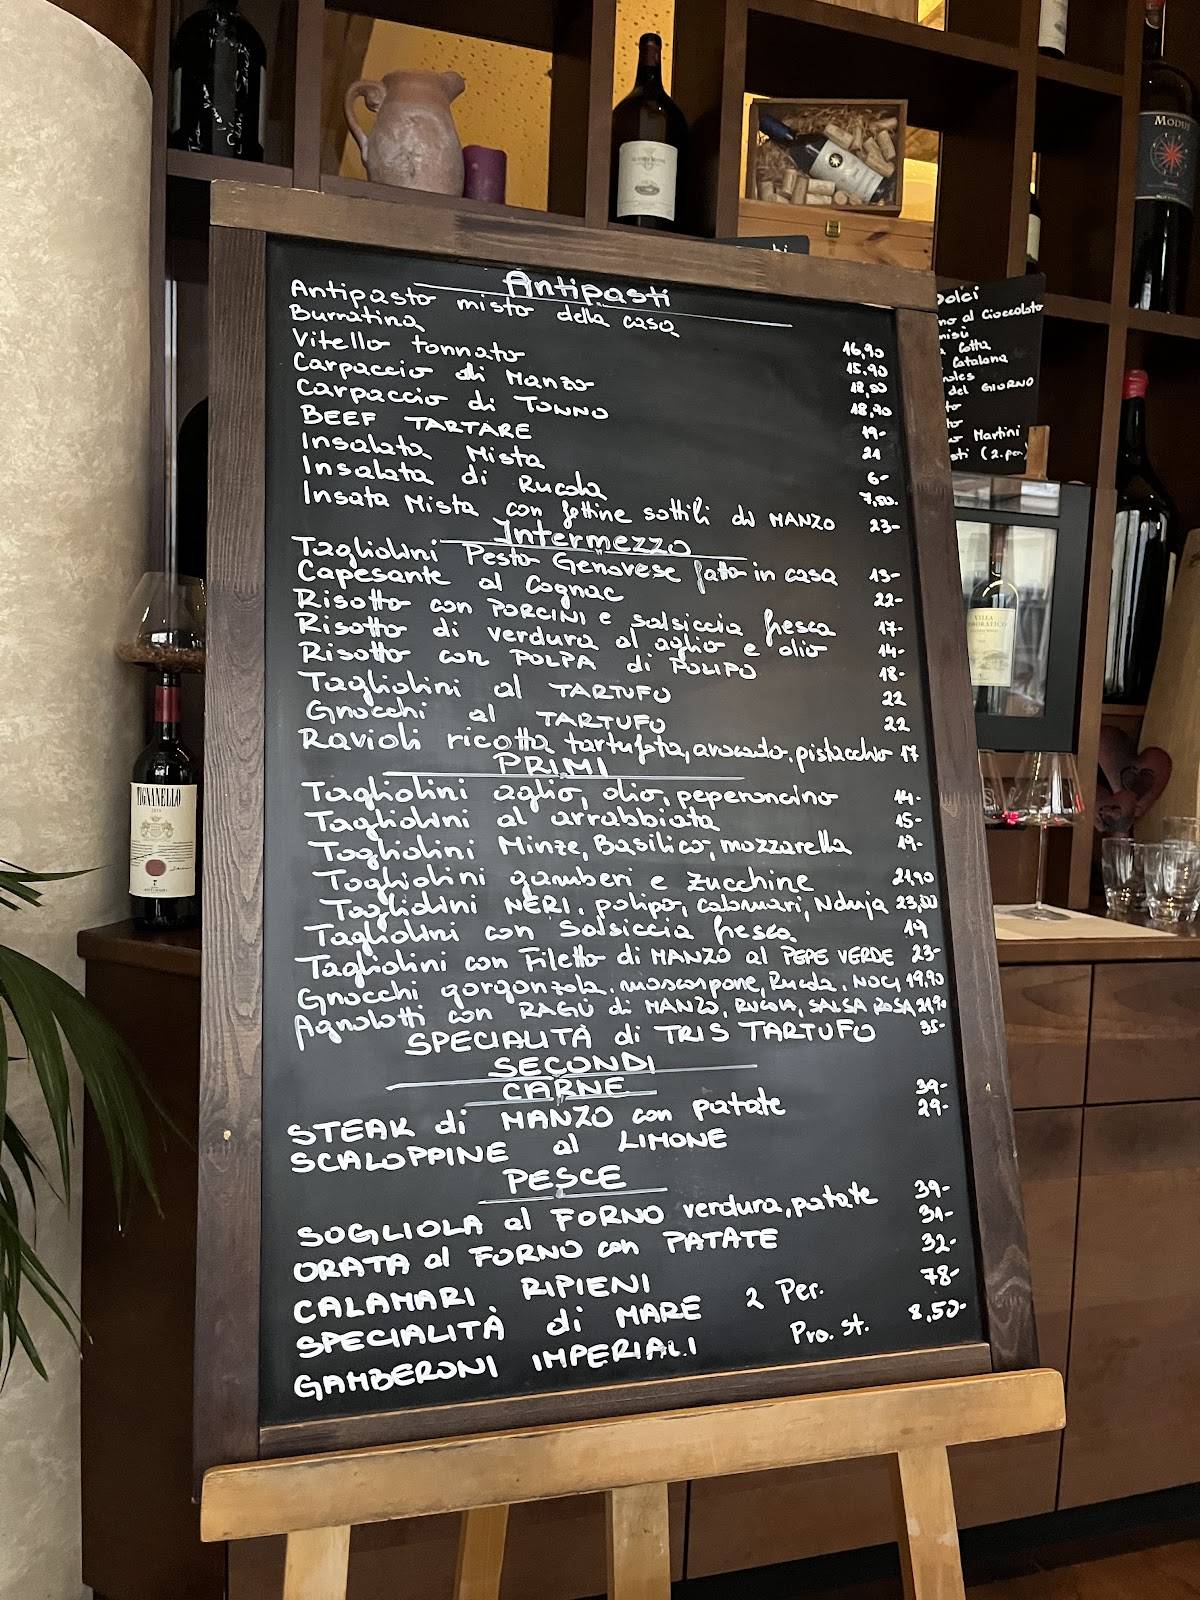 Antipasti
Antipasto misto della casa 16,90
Burratina 15.90
Vitello tonnato 18,50
Carpaccio di Manzo 18,90
Carpaccio di TONNO 19-
BEEF TARTARE 21
Insalata Mista 6-
Insalata di Rucola 7,50.
Insata Mista con fettine sottili di MANZO 23-
Intermezzo
Tagliolini Pesto Genovese fato in casa 13-
Capesante al Cognac 22-
Risotto con PORCINI e salsiccia fresca 17-
Risotto di verdura al aglio e olio 14-
Risotto con POLPA di POLIPO 18-
Tagliolini al TARTUFO 22
Gnocchi al TARTUFO 22
Ravioli ricotta tartufata, avocado, pistacchio 17
PRIMI
Tagliolini aglio, olio, peperoncino 14-
Tagliolini al arrabbiata 15-
Tagliolini Minze, Basilico, mozzarella 19-
Tagliolini gamberi e zucchine 21,90
Tagliolini NERI, polipo, calamari, Nduja 23,00
Tagliolini con Salsiccia fresca 19
Tagliolini con Filetto di MANZO al PEPE VERDE 23-
Gnocchi gorgonzola, mascarpone, Rucola, NOCI 19,90
Agnolotti con RAGÙ di MANZO, RUCOLA, SALSA ROSA 21,90
SPECIALITÀ di TRIS TARTUFO 35-
SECONDI
CARNE
STEAK di MANZO con patate 39-
SCALOPPINE al LIMONE 29-
PESCE
SOGLIOLA al FORNO verdura, patate 39-
ORATA al FORNO con PATATE 31-
CALAMARI RIPIENI 32-
SPECIALITÀ di MARE 2 Per. 78-
GAMBERONI IMPERIALI Pro. St. 8,50-
Dolci
al Cioccolato
Cotta
Catalana
del GIORNO
Martini
(2.per)
MODUS
TIGNANELLO
VILLA